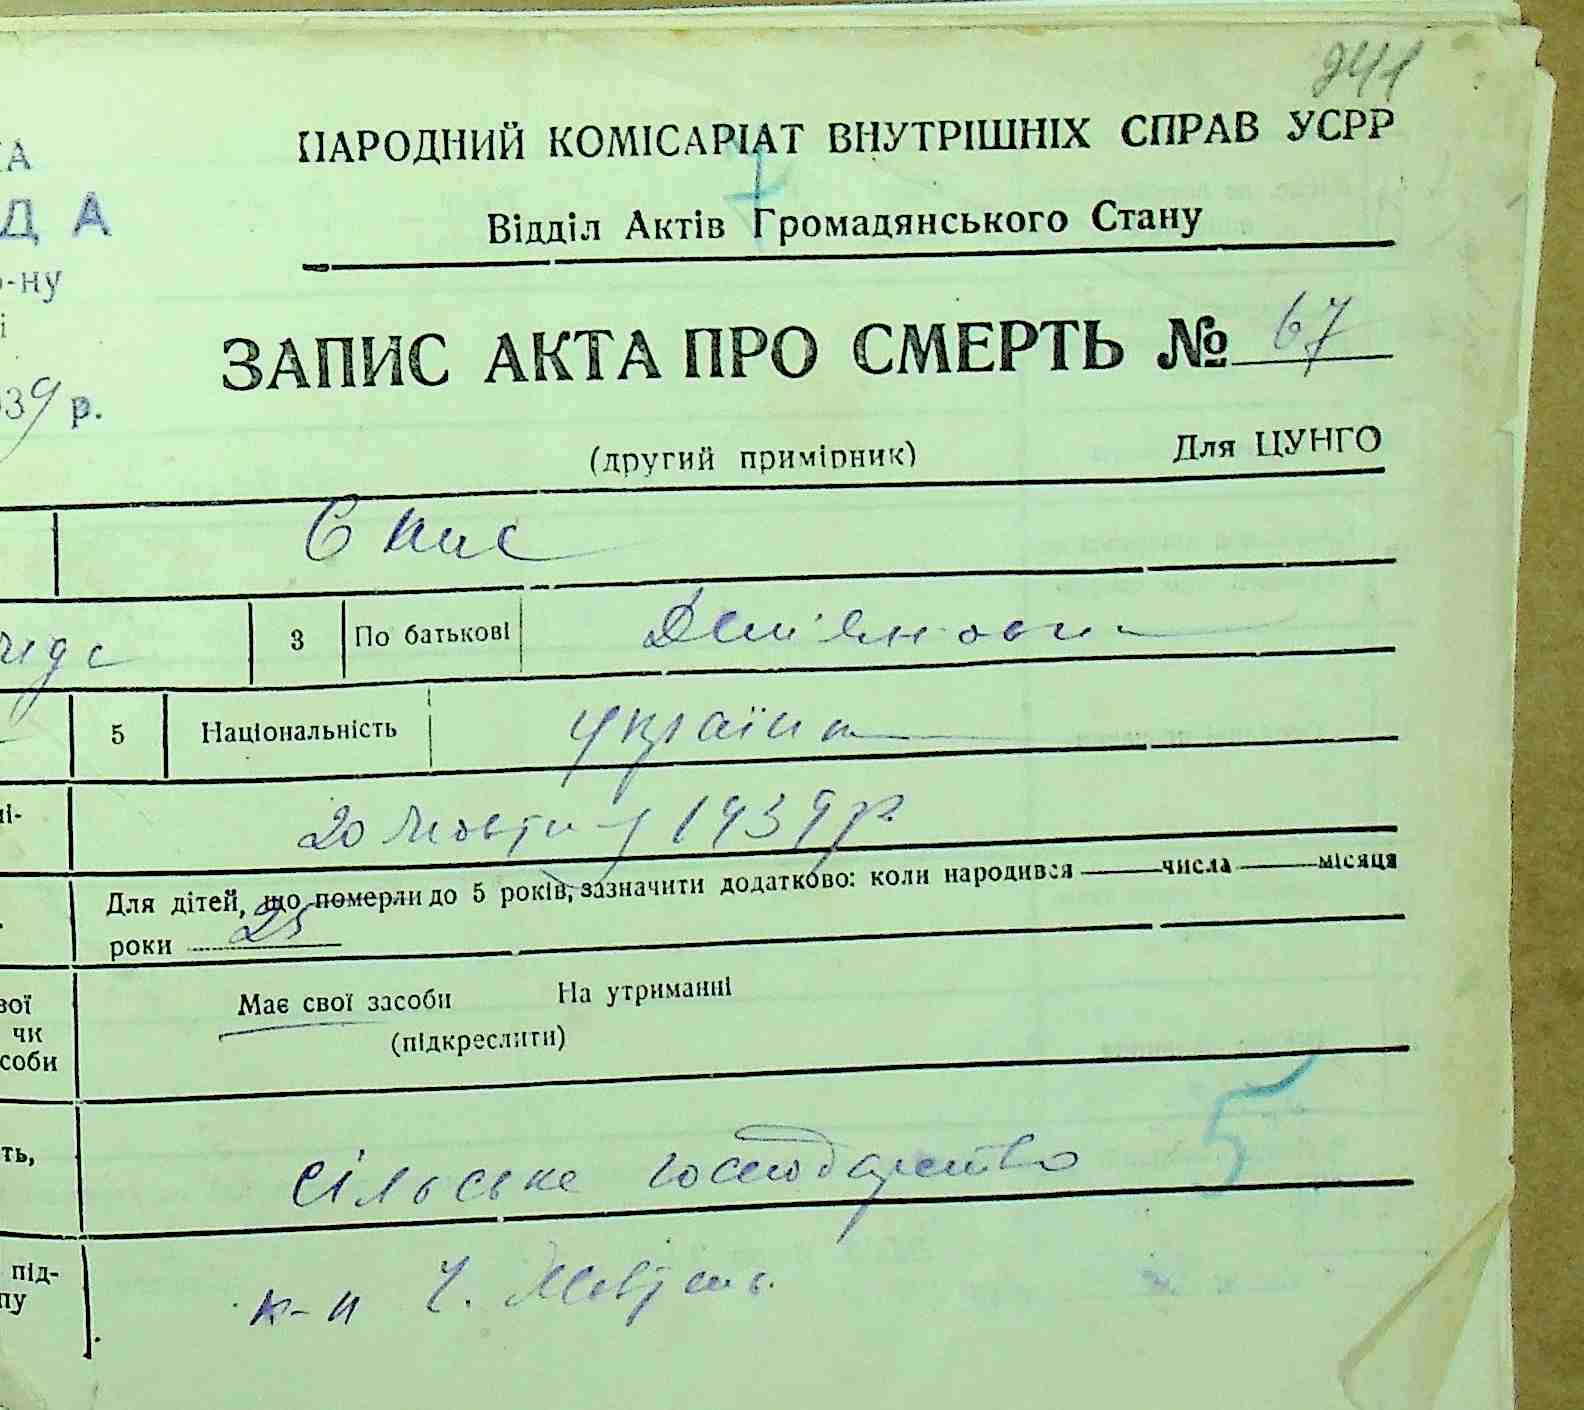 241
НАРОДНИЙ КОМІСАРІАТ ВНУТРІШНІХ СПРАВ УСРР
Відділ Актів Громадянського Стану
КА
ДА
р-ну
і
939 р.
ЗАПИС АКТА ПРО СМЕРТЬ № 67
(другий примірник) Для ЦУНГО
3 По батькові Дем'янович
5 Національність україн
20 Жовтня 1939 р.
Для дітей, що померли до 5 років, зазначити додатково: коли народився числа місяця
роки 25
вої
чи
соби
Має свої засоби На утриманні
(підкреслити)
5
ть,
сільське господарство
під-
пу
к-п Ч. Жовтень